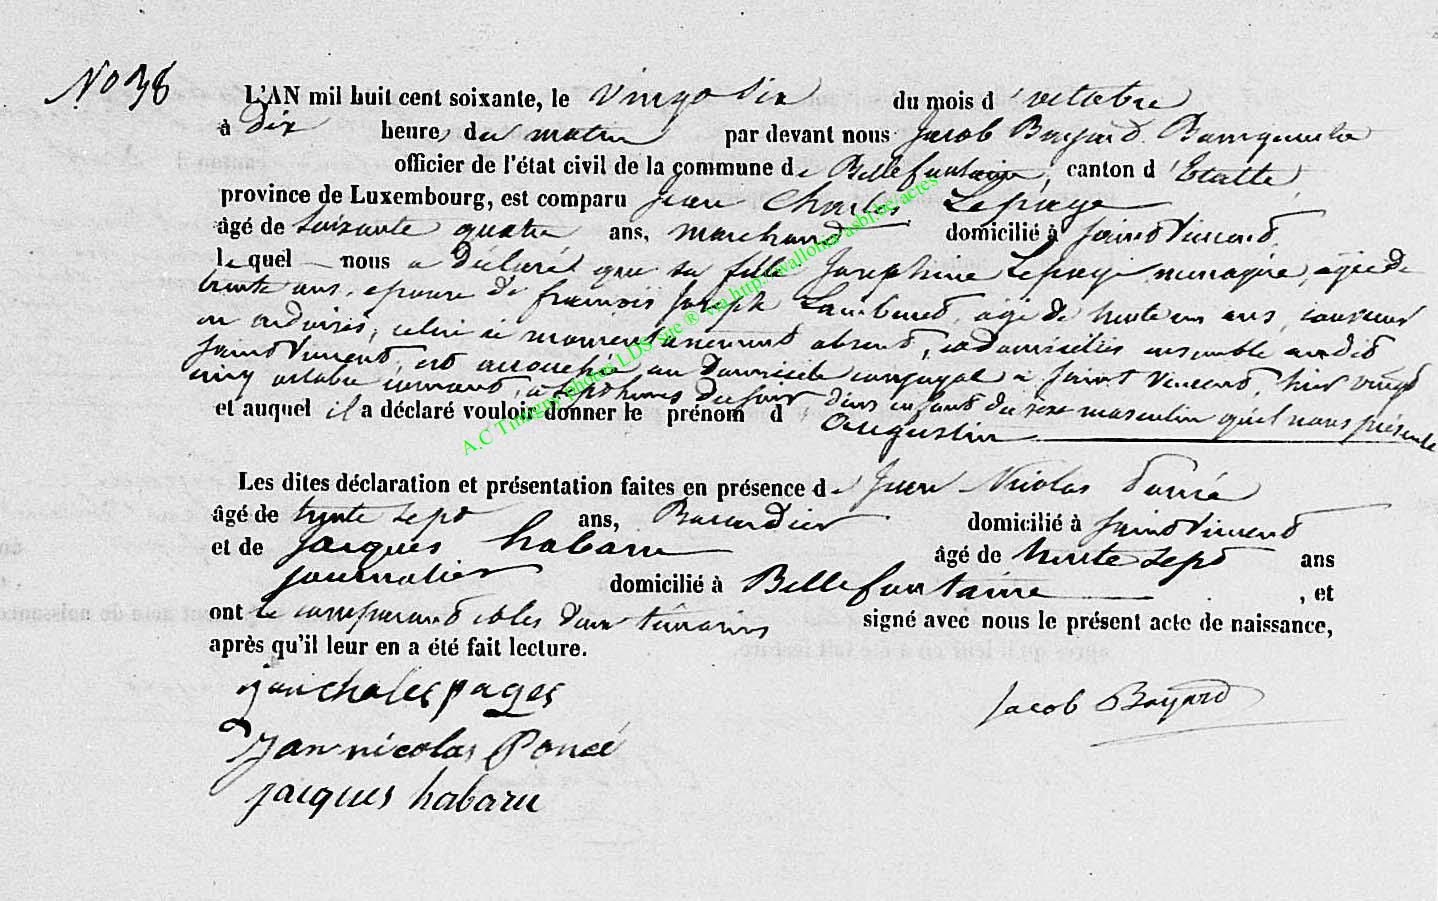 No 38
L'AN mil huit cent soixante, le vingt six du mois d'octobre
à dix heures du matin par devant nous Jacob Bayard Bourgmestre
officier de l'état civil de la commune de Bellefontaine, canton d'Etalle,
province de Luxembourg, est comparu Jean Charles Lepage
âgé de soixante quatre ans, marchand domicilié à Saint Vincent,
lequel nous a déclaré que sa fille Josephine Lepage menagère, agée de
trente ans, epouse de françois Joseph Lambinet, agé de trente un ans, couvreur
en ardoises, celui ci momentanement absent, domiciliés ensemble audit
Saint Vincent, est accouchée au domicile conjugal à Saint Vincent, hier vingt
cinq octobre courant, à sept heures du soir d'un enfant du sexe masculin qu'il nous présente
et auquel il a déclaré vouloir donner le prénom d'Augustin
Les dites déclaration et présentation faites en présence de Jean Nicolas Poncé
âgé de trente sept ans, domicilié à Saint Vincent
et de Jacques habaru âgé de trente sept ans
journalier domicilié à Bellefontaine, et
ont le comparant et les deux témoins signé avec nous le présent acte de naissance,
après qu'il leur en a été fait lecture.
Jacob Bayard
Jan nicolas Poncé
jacques habaru
A.C Tintigny photos LDS Site ® via http://wallonia-asbl.be/actes